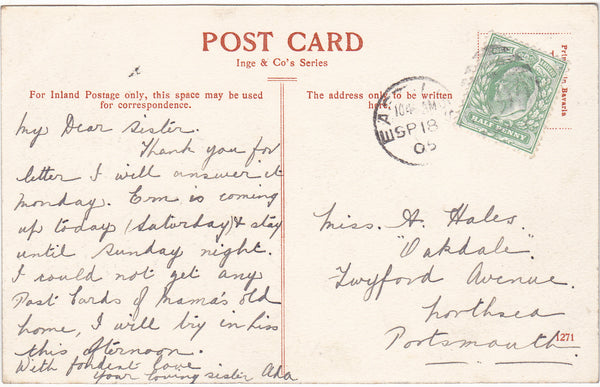 POST CARD
Inge & Co's Series
For Inland Postage only, this space may be used
for correspondence.
My Dear Sister.
Thank you for
letter I will answer it
Monday. Ern is coming
up today (Saturday) & stay
until Sunday night.
I could not get any
Post Cards of Mama's old
home, I will try in
this afternoon.
With fondest love
your loving sister Ada
The address only to be written
here.
HALF PENNY
10 45 AM
SP 18
05
in Bavaria
Miss. A. Hales.
"Oakdale".
Twyford Avenue.
Northsea
Portsmouth.
1271